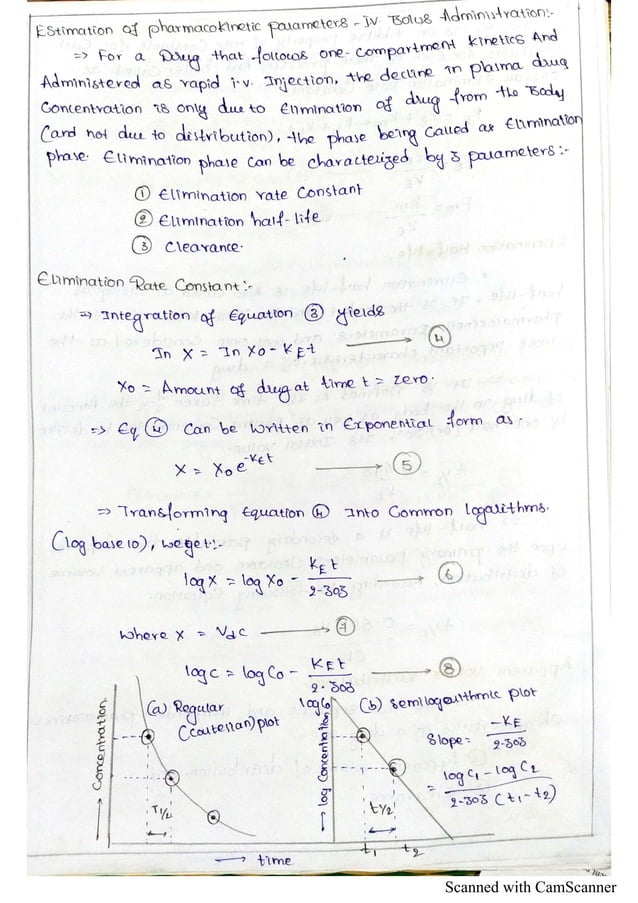 Estimation of pharmacokinetic parameters - IV Bolus Administration:-
⇒ For a Drug that follows one-compartment kinetics And
Administered as rapid i.v. Injection, the decline in plasma drug
Concentration is only due to Elimination of drug from the Body
(and not due to distribution), the phase being called as Elimination
phase. Elimination phase can be characterized by 3 parameters:-
① Elimination rate Constant
② Elimination half-life
③ Clearance.
Elimination Rate Constant:-
⇒ Integration of Equation ③ yields
In X = In Xo - KEt → ④
Xo = Amount of drug at time t = zero.
⇒ Eq ④ Can be written in Exponential form as.
X = Xo e^-KEt → ⑤
⇒ Transforming Equation ④ Into Common logarithms.
(log base 10), we get:-
log X = log Xo - KEt / 2.303 → ⑥
Where X = Vdc → ⑦
log C = log Co - KEt / 2.303 → ⑧
(a) Regular
(Cauterian) plot
→ Concentration
T1/2
log Co
(b) Semilogarithmic plot
Slope = -KE / 2.303
= log C1 - log C2 / 2.303 (t1 - t2)
→ log Concentration
t1/2
t1 t2
→ time
Scanned with CamScanner